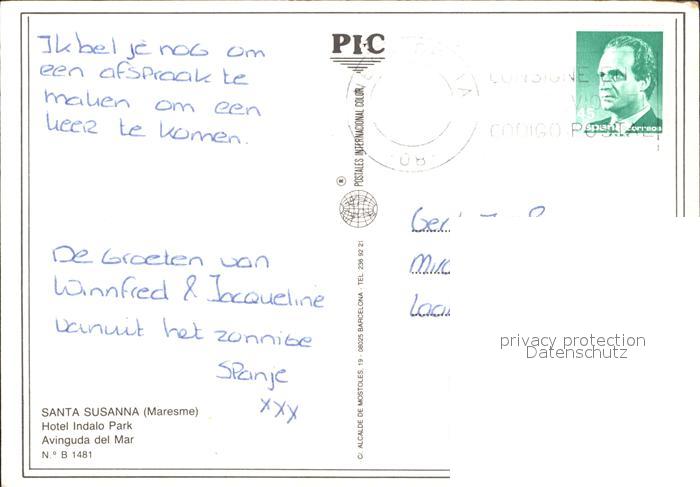 Ik bel je nog om
een afspraak te
maken om een
keer te komen.
De Groeten van
Winnfred & Jacqueline
vanuit het zonnige
Spanje
xxx
SANTA SUSANNA (Maresme)
Hotel Indalo Park
Avinguda del Mar
N.º B 1481
PIC
POSTALES INTERNACIONAL COLOR
C/ ALCALDE DE MOSTOLES, 19 - 08025 BARCELONA - TEL. 236 92 21
08
CONSIGNE
CODIGO POSTAL
45
España correos
privacy protection
Datenschutz